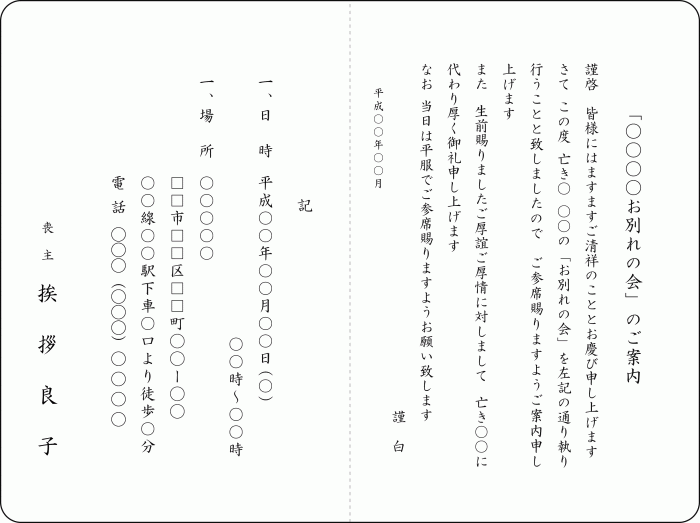 「〇〇〇〇お別れの会」のご案内
謹啓　皆様にはますますご清祥のこととお慶び申し上げます
さて この度 亡き〇 〇〇の「お別れの会」を左記の通り執り
行うことと致しましたので　ご参席賜りますようご案内申し
上げます
また　生前賜りましたご厚誼ご厚情に対しまして　亡き〇〇に
代わり厚く御礼申し上げます
なお 当日は平服でご参席賜りますようお願い致します
謹　白
平成〇〇年〇〇月
記
一、日　時　平成〇〇年〇〇月〇〇日(〇)
〇〇時～〇〇時
一、場　所　〇〇〇〇〇
□□市□□区□□町〇〇ー〇〇
〇〇線〇〇駅下車〇口より徒歩〇分
電話　〇〇〇(〇〇〇)〇〇〇〇
喪主　挨拶良子